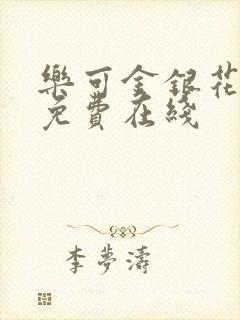 樂可金銀花
免費在綫
李夢濤